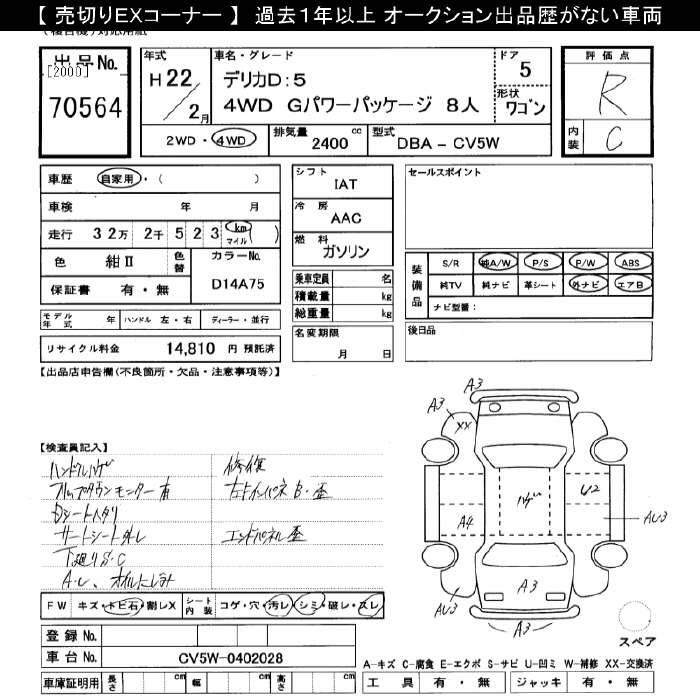 【 売切りEXコーナー 】 過去１年以上 オークション出品歴がない車両
出品No.
[2000]
70564
年式
H 22 / 2月
車名・グレード
デリカD：5
4WD Gパワーパッケージ 8人
ドア
5
形状
ワゴン
2WD・4WD
排気量
2400 cc
型式
DBA - CV5W
評価点
R
内装
C
車歴 自家用・( )
車検 年 月
走行 32万 2千 523 km マイル )
色 紺Ⅱ
色替
カラーNo.
D14A75
保証書 有・無
モデル年式 年 ハンドル 左・右 ディーラー・並行
リサイクル料金 14,810 円 預託済
シフト
IAT
冷房
AAC
燃料
ガソリン
乗車定員 名
積載量 kg
総重量 kg
名変期限
月 日
セールスポイント
装備品
S/R 純A/W P/S P/W ABS
純TV 純ナビ 革シート 外ナビ エアB
ナビ型番：
後日品
【出品店申告欄(不良箇所・欠品・注意事項等)】
【検査員記入】
ハンドルハゲ
フリップダウンモニター有
下廻りS・C
修復
エンドパネル歪
A3
A3
XX
ハゲ
U2
A4
AU3
AU3
A3
A3
スペア
FW キズ・トビ石・割レX
シート内装 コゲ・穴・汚レ・シミ・破レ・スレ
登録No.
車台No. CV5W-0402028
車庫証明用 長さ cm 幅 cm 高さ cm
A-キズ C-腐食 E-エクボ S-サビ U-凹ミ W-補修 XX-交換済
工具 有・無 ジャッキ 有・無